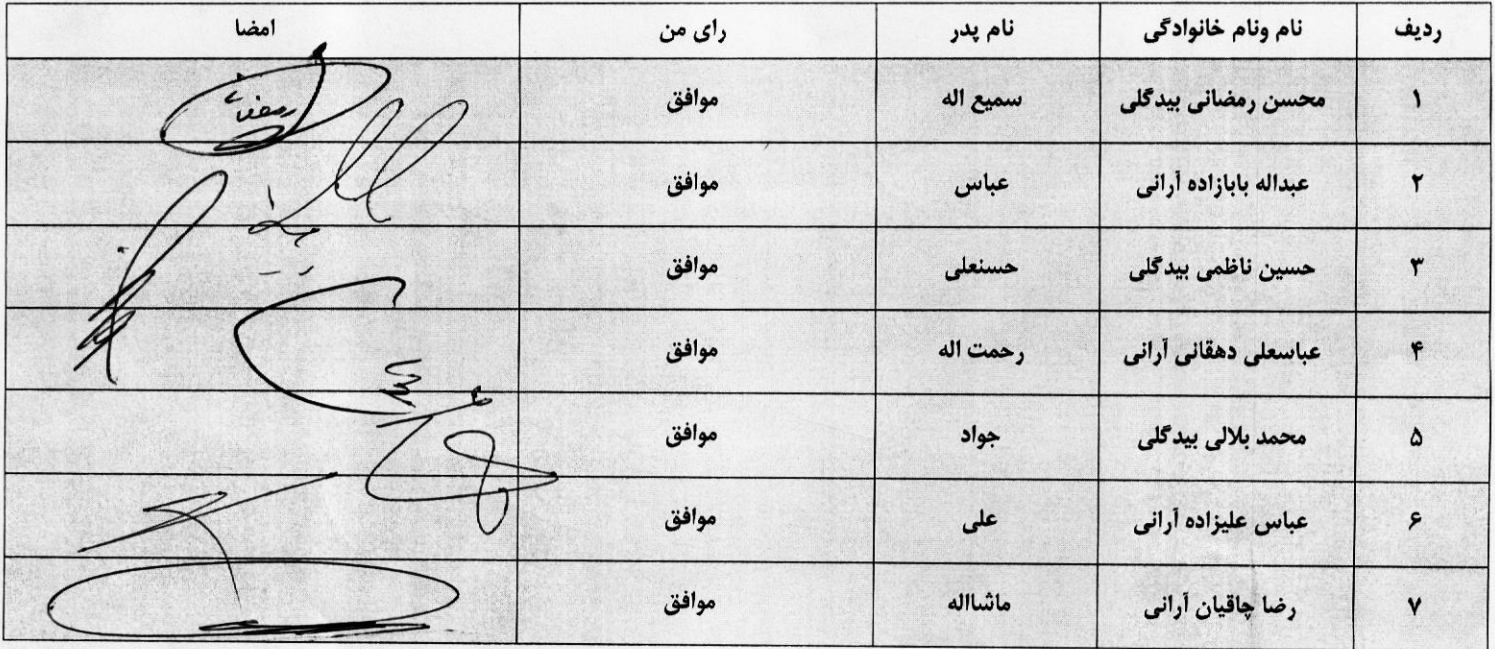 ردیف نام ونام خانوادگی نام پدر رای من امضا
۱ محسن رمضانی بیدگلی سمیع اله موافق
۲ عبداله بابازاده آرانی عباس موافق
۳ حسین ناظمی بیدگلی حسنعلی موافق
۴ عباسعلی دهقانی آرانی رحمت اله موافق
۵ محمد بلالی بیدگلی جواد موافق
۶ عباس علیزاده آرانی علی موافق
۷ رضا چاقیان آرانی ماشااله موافق